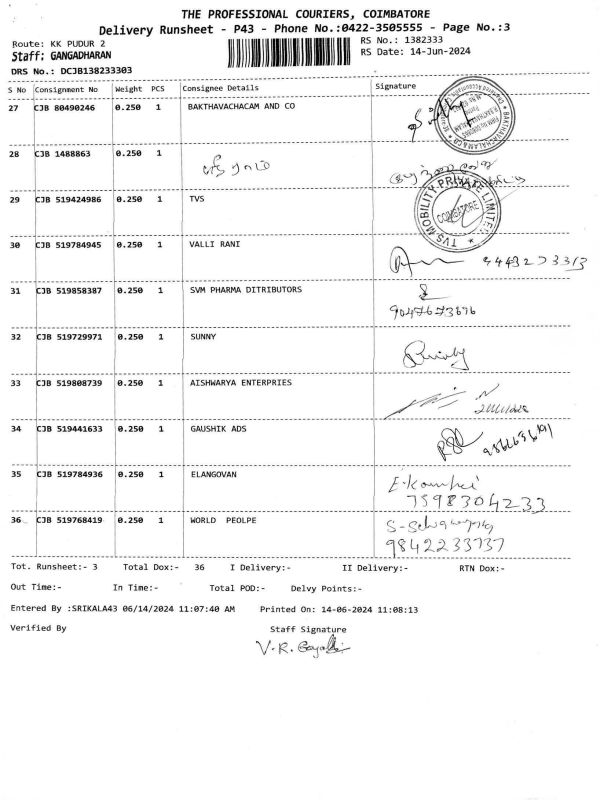 THE PROFESSIONAL COURIERS, COIMBATORE
Delivery Runsheet - P43 - Phone No.:0422-3505555 - Page No.:3
Route: KK PUDUR 2
RS No.: 1382333
Staff: GANGADHARAN
RS Date: 14-Jun-2024
DRS No.: DCJB138233303
S No Consignment No Weight PCS Consignee Details Signature
27 CJB 80490246 0.250 1 BAKTHAVACHACAM AND CO
28 CJB 1488863 0.250 1
29 CJB 519424986 0.250 1 TVS
TVS MOBILITY PRIVATE LIMITED
COIMBATORE
30 CJB 519784945 0.250 1 VALLI RANI
31 CJB 519858387 0.250 1 SVM PHARMA DITRIBUTORS
9047673696
32 CJB 519729971 0.250 1 SUNNY
33 CJB 519808739 0.250 1 AISHWARYA ENTERPRIES
34 CJB 519441633 0.250 1 GAUSHIK ADS
35 CJB 519784936 0.250 1 ELANGOVAN
7598304233
36 CJB 519768419 0.250 1 WORLD PEOLPE
9842233737
Tot. Runsheet:- 3 Total Dox:- 36 I Delivery:- II Delivery:- RTN Dox:-
Out Time:- In Time:- Total POD:- Delvy Points:-
Entered By :SRIKALA43 06/14/2024 11:07:40 AM Printed On: 14-06-2024 11:08:13
Verified By Staff Signature
V.R.